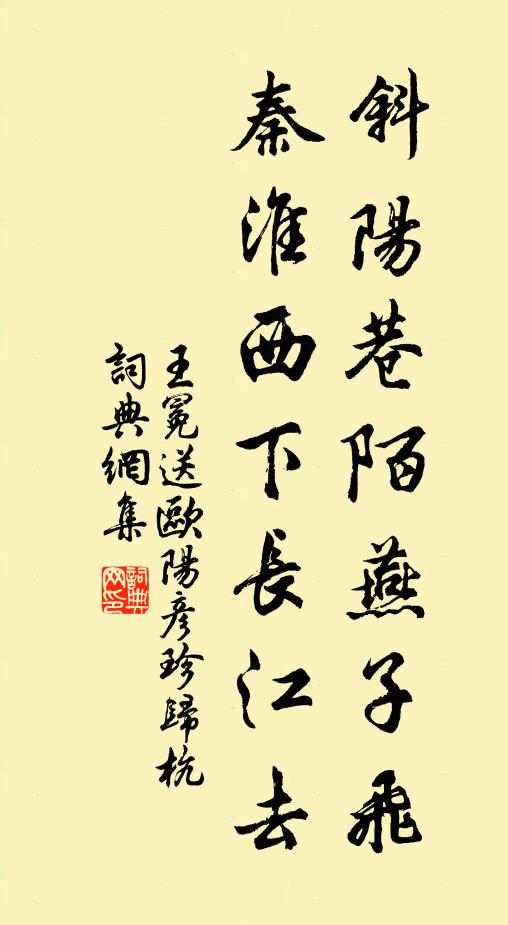 斜陽巷陌燕子飛
秦淮西下長江去
王冕送歐陽彥珍歸杭
詞典網集
詞典
网印